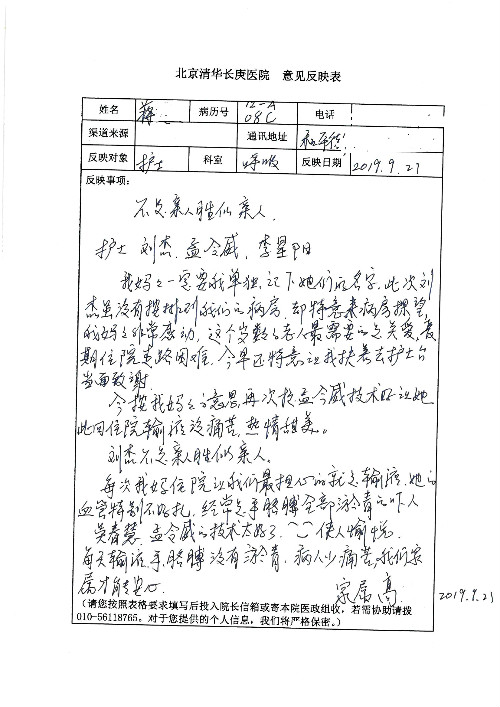 北京清华长庚医院 意见反映表
姓名 蒋 病历号 12-A 08C 电话
渠道来源 通讯地址
反映对象 护士 科室 呼吸 反映日期 2019.9.21
反映事项:
不是亲人胜似亲人.
护士 刘杰.孟令威.李星阳
我妈妈一定要我单独记下她们的名字.此次刘
杰虽没有按排到我们的病房.却特意来病房探望,
我妈妈非常感动,这个岁数的老人最需要的是关爱,长
期住院走路困难.今早还特意让我扶着去护士台
当面致谢
今按我妈妈的意思再次 孟令威技术 让她
此回住院输液没痛苦.热情甜美。
刘杰不是亲人胜似亲人.
每次我妈住院让我们最担心的就是输液.她的
血管特别不好扎.经常是手胳膊全部淤青的吓人
吴春慧.孟令威的技术太好了. 使人愉悦.
每天输液手胳膊没有淤青.病人少痛苦,我们家
属才能安心.
家属高. 2019.9.21
(请您按照表格要求填写后投入院长信箱或寄本院医政组收,若需协助请拨
010-56118765。对于您提供的个人信息,我们将严格保密。)